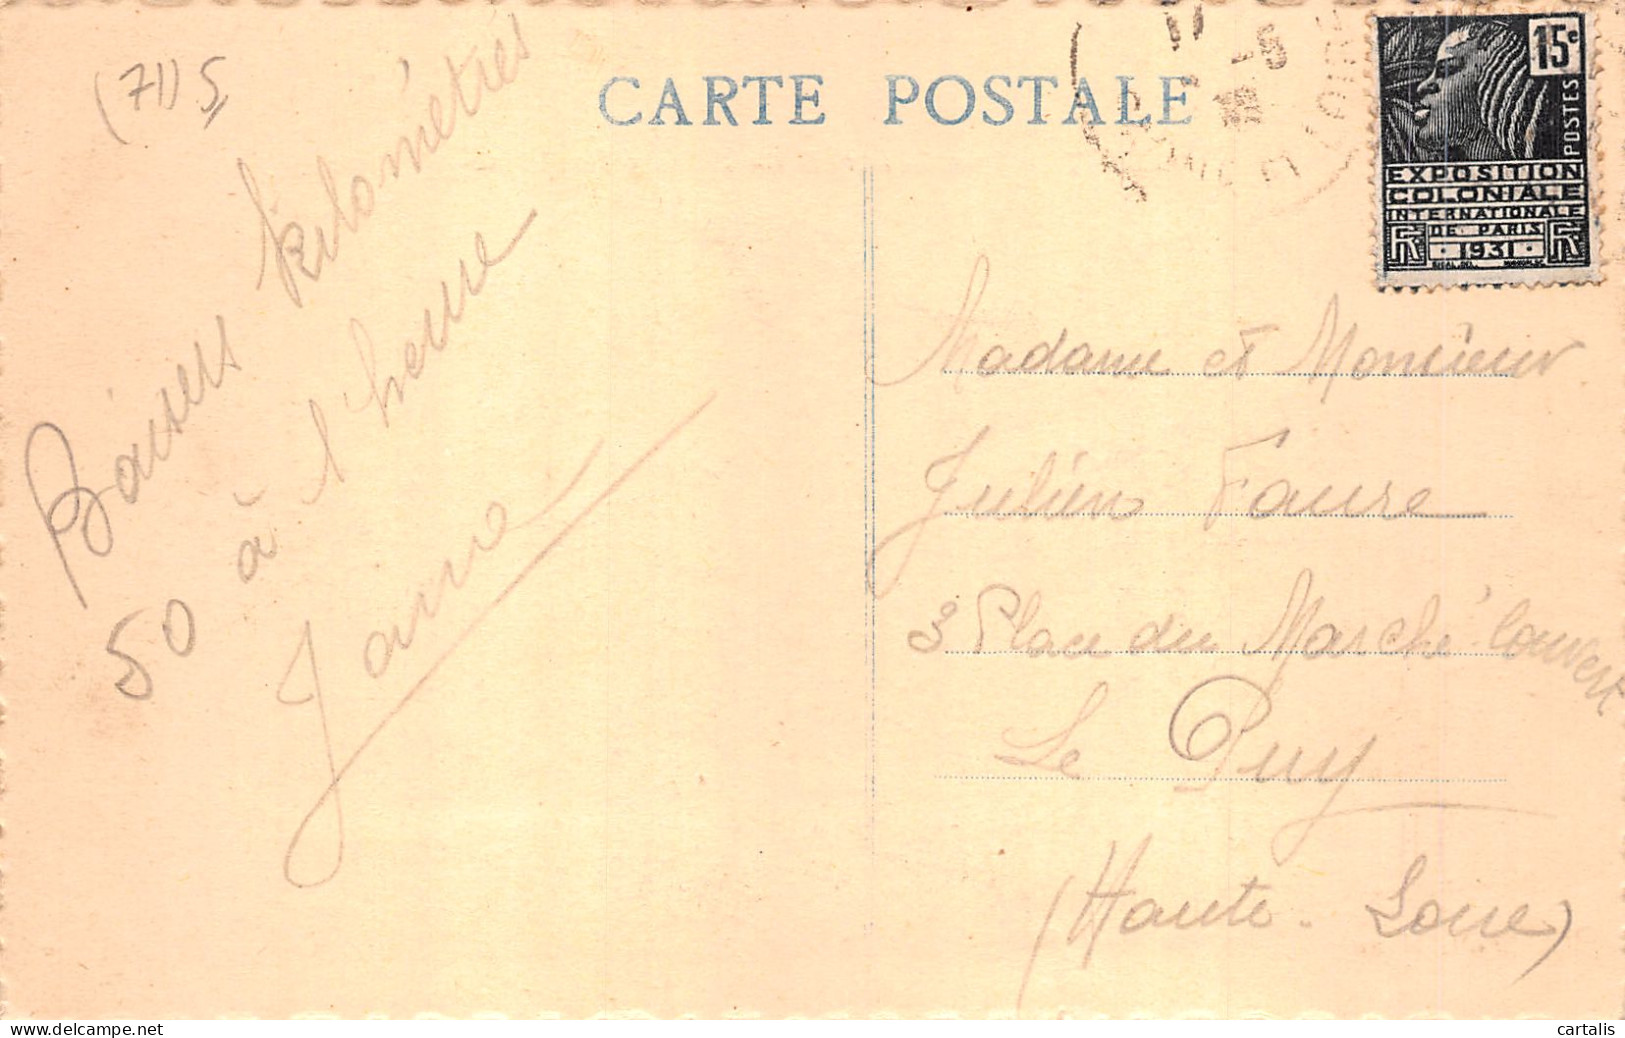 (71) S
CARTE POSTALE
15c
POSTES
EXPOSITION
COLONIALE
INTERNATIONALE
DE PARIS
RF 1931 RF
Baisers kilométrés
50 à l'heure
Madame et Monsieur
Julien Faure
3 Place du Marché couvert
Le Puy
(Haute-Loire)
cartalis
https://www.delcampe.net